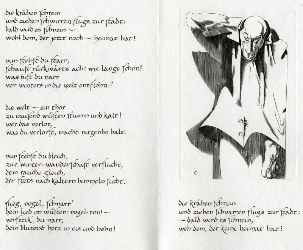 die krähen schrein
und ziehen schwirren flugs zur stadt:
bald wird es schnein –
wohl dem, der jetzt noch – heimat hat!
nun stehst du starr,
schaust rückwärts ach! wie lange schon!
was bist du narr
vor winters in die welt entflohn?
die welt – ein thor
zu tausend wüsten stumm und kalt!
wer das verlor,
was du verlorst, macht nirgends halt.
nun stehst du bleich,
zur winter-wanderschaft verflucht,
dem rauche gleich,
der stets nach kältern himmeln sucht.
flieg, vogel, schnarr'
dein lied im wüsten-vogel-ton! –
versteck' du narr,
dein blutend herz in eis und hohn!
die krähen schrein
und ziehen schwirren flugs zur stadt:
– bald wird es schnein,
weh dem, der keine heimat hat!